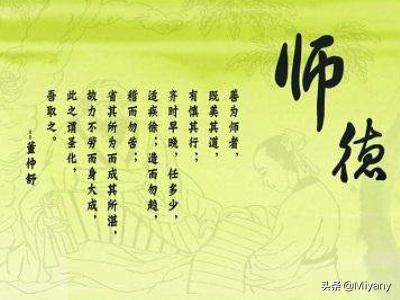 师德
善为师者，
既美其道，
有慎其行；
齐时早晚，任多少，
适疾徐；造而勿趋，
稽而勿苦；
省其所为而成其所湛，
故力不劳而身大成，
此之谓圣化，
吾取之。
董仲舒
头条 @Miyany